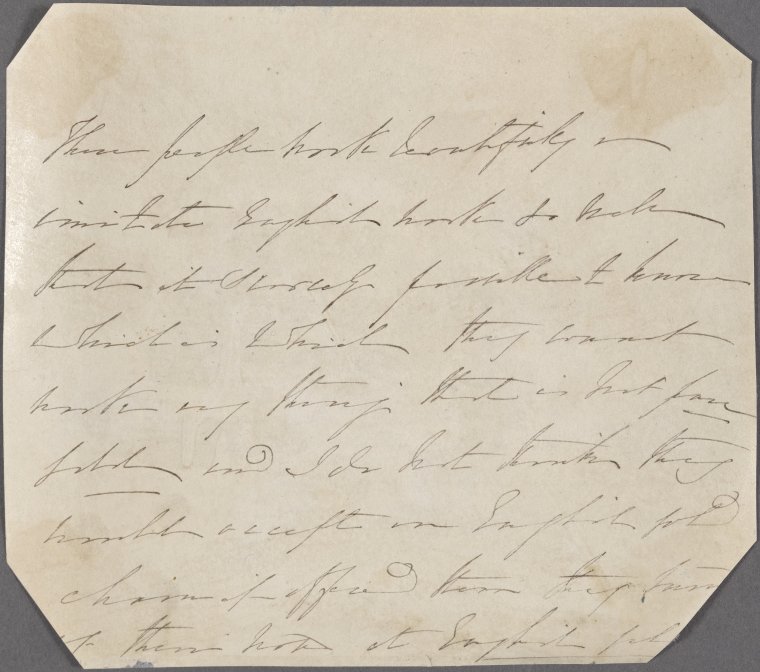 These people work beautifully &
imitate English work so well
that it scarcely possible to know
which is which they cannot
work any thing that is not pure
gold and I do not think they
would accept an English gold
chain if offered them they turn
up their nose at English gold